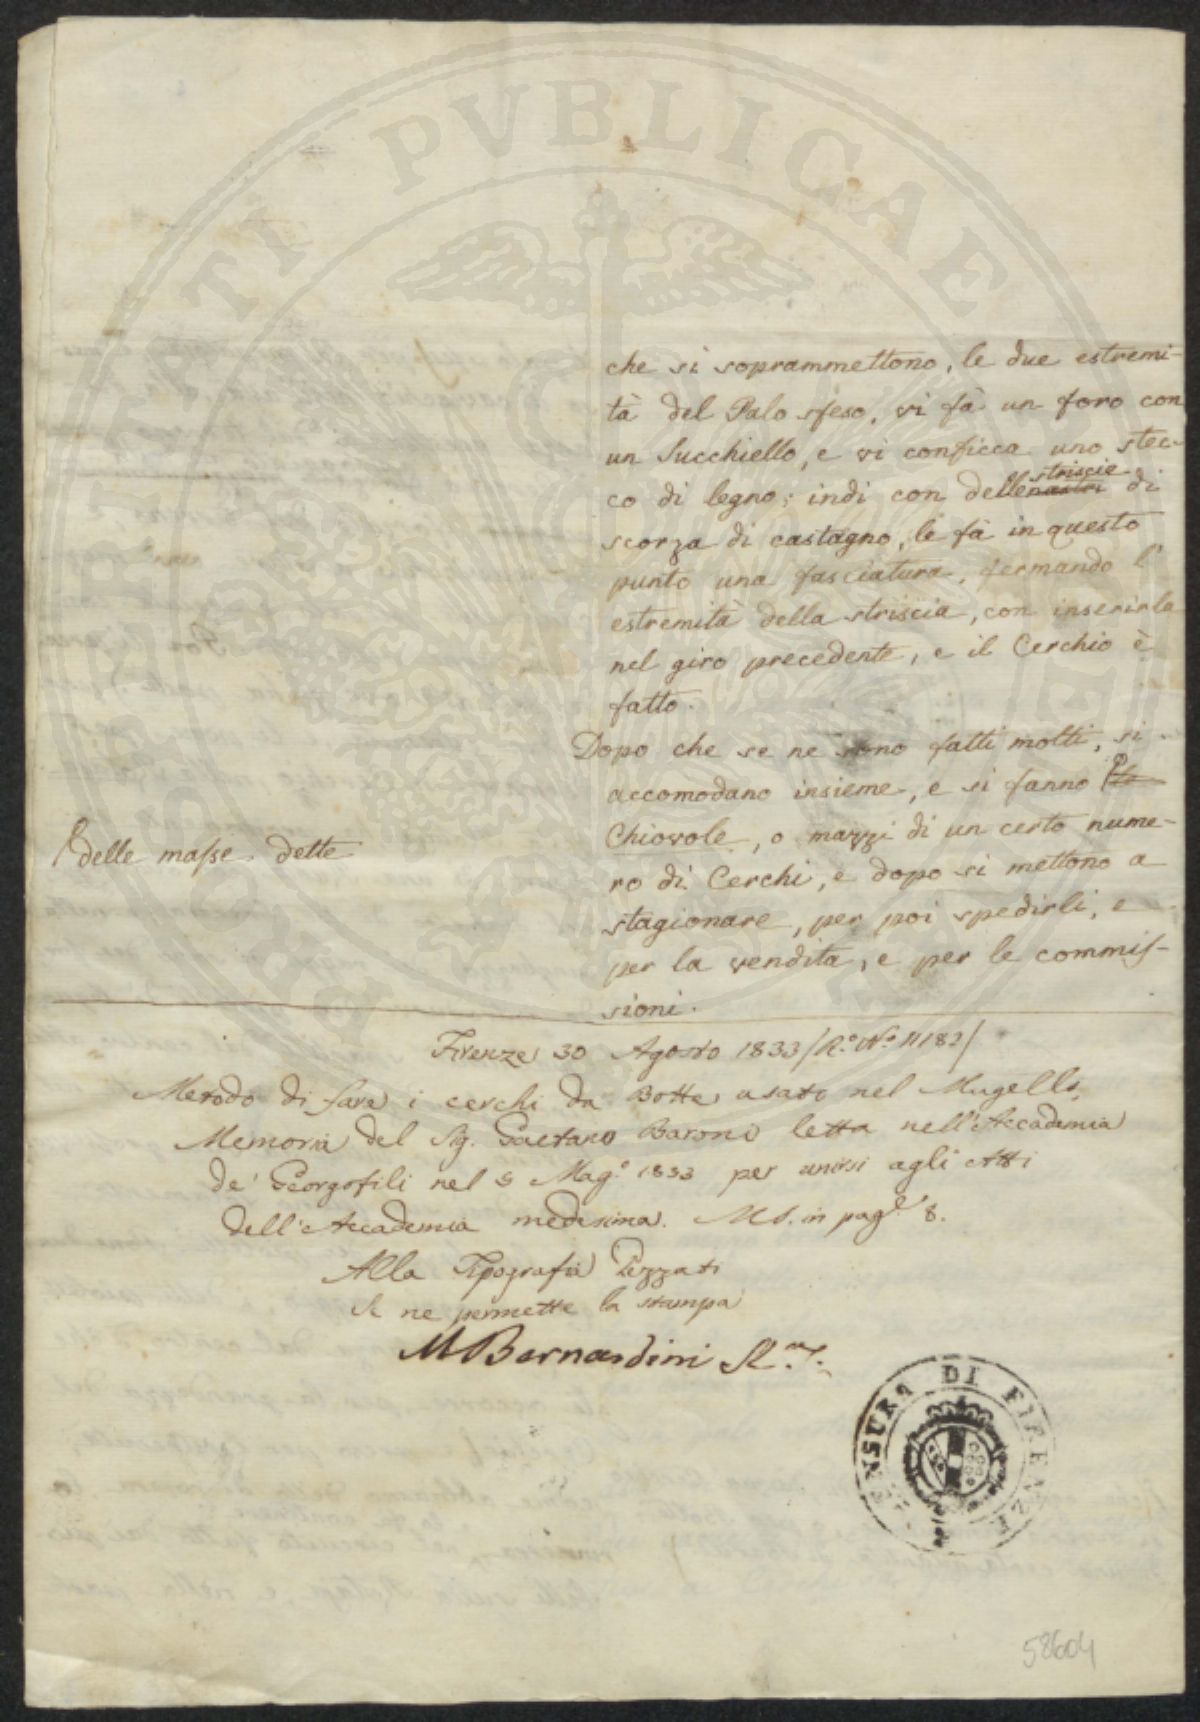 che si soprammettono, le due estremi-
tà del Palo sfeso, vi fà un foro con
un Succhiello, e vi conficca uno stec-
co di legno; indi con delle nastri striscie di
scorza di castagno, le fà in questo
punto una fasciatura, fermando l'
estremità della striscia, con inserirla
nel giro precedente, e il Cerchio è
fatto.
Dopo che se ne sono fatti molti, si
accomodano insieme, e si fanno
delle masse dette
Chiovole, o mazzi di un certo nume-
ro di Cerchi, e dopo si mettono a
stagionare, per poi spedirli, e
per la vendita, e per le commis-
sioni.
Firenze 30 Agosto 1833 /R.o N.o 11182/
Metodo di fare i cerchi da Botte usato nel Mugello,
Memoria del Sig. Gaetano Baroni letta nell'Accademia
de' Georgofili nel 5 Mag.o 1833 per unirsi agli Atti
dell'Accademia medesima. MS. in pag.e 8.
Alla Tipografia Pezzati
Se ne permette la stampa
M Bernardini
CENSURA DI FIRENZE
58604
PVBLICAE